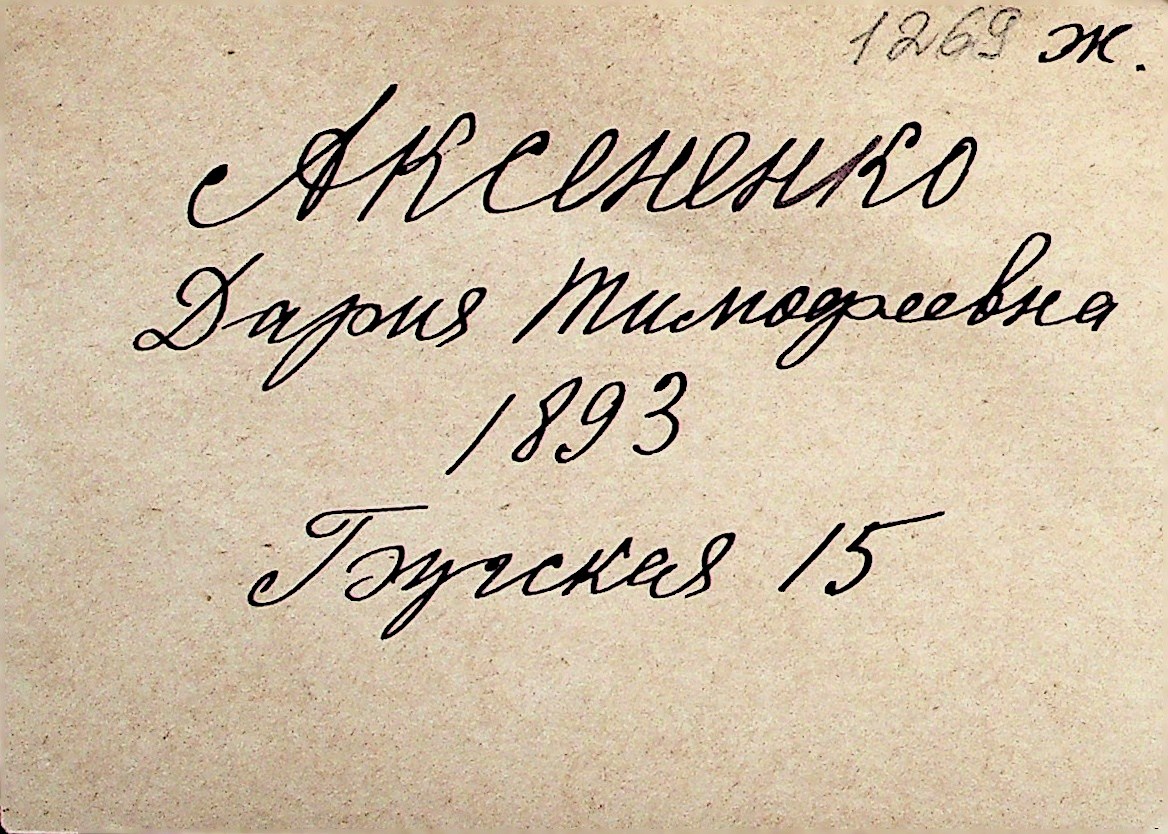 1269 ж.
Аксененко
Дария Тимофеевна
1893
Бугская 15